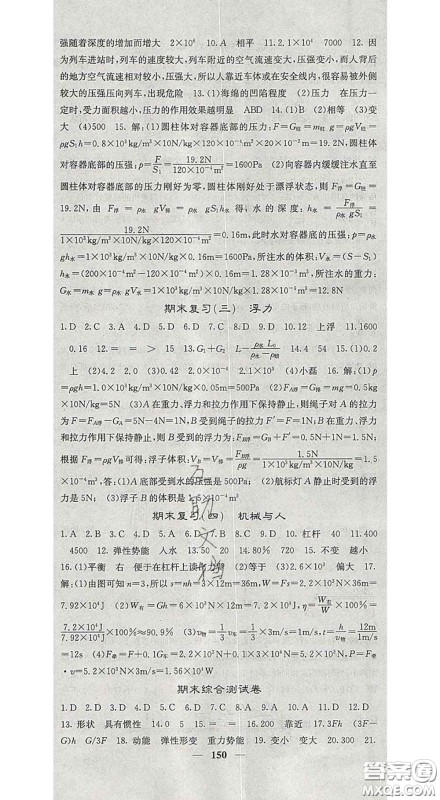 强随着深度的增加而增大 2×10⁶ 10.A 相平 11.2.1×10⁴ 7000 12.因
为列车进站时,列车的速度较大,列车附近的空气流速大、压强变小,而人背后
的地方空气流速相对较小,压强大,所以人靠近车体或在安全线内,很容易被外侧
较大的压强压向列车,出现危险 13.(1)海绵的凹陷程度 (2)压力 在压力一
定时,受力面积越小,压力的作用效果越明显 ABD 14.(1)B (2)相等 (3)变
大 (4)500 15.解:(1)圆柱体对容器底部的压力:F=G柱=m柱 g=ρgV柱=
ρgS₁h=0.8×10³kg/m³×10N/kg×120×10⁻⁴m²×0.2m=19.2N,圆柱体
对容器底部的压强:p=F/S₁=19.2N/120×10⁻⁴m²=1600Pa (2)向容器内缓缓注水直至
圆柱体对容器底部的压力刚好为零,圆柱体刚好处于漂浮状态,则 F浮=G柱=
19.2N,由 F浮=ρ水 gV排=ρ水 gS₁h水 得,水的深度:h水=F浮/ρ水 gS₁=
19.2N/1×10³kg/m³×10N/kg×120×10⁻⁴m²=0.16m,此时水对容器底的压强:p水=ρ水
gh水=1×10³kg/m³×10N/kg×0.16m=1600Pa,所注水的体积:V水=(S−S₁)
h水=(200×10⁻⁴m²−120×10⁻⁴m²)×0.16m=1.28×10⁻³m³,所注水的重力:
G水=m水 g=ρ水 gV水=1×10³kg/m³×10N/kg×1.28×10⁻³m³=12.8N
期末复习(三) 浮力
1.D 2.C 3.A 4.D 5.D 6.C 7.D 8.D 9.D 10.12 上浮 11.1600
0.16 12.= = > 15 13.G₁+G₂ L−ρ水 L₀/ρ液 14.4 54 15.(1)0.2
上 (2)4.2 (3)0.42 (4)2.0 2.1×10³ (5)小磊 (6)小 16.解:(1)p=
ρgh=1.0×10³kg/m³×10N/kg×0.05m=500Pa
N/kg=5N (2)F浮=ρgV排=
为 F=F浮A−GA=5N−4N=1N,B受到绳子的拉力 F′=F=1N;B在重力、
浮力和拉力作用下保持静止,则 B受到的浮力为 F浮B=GB+F′=0.5N+1N=1.5N;
根据 F浮=ρgV排可得:浮子体积:VB=V排=F浮B/ρg=1.5N/1×10³kg/m³×10N/kg=1.5×
10⁻⁴m³。答:(1)航标灯A底部受到水的压强是500Pa;(2)航标灯A静止时受到的浮力
是5N;(3)浮子B的体积为1.5×10⁻⁴m³
期末复习(四) 机械与人
1.A 2.D 3.C 4.B 5.D 6.A 7.C 8.C 9.D 10.C 11.杠杆 40 400
4500 12.弹性势能 人水 13.50 20 14.80% 720 15.不变 越小
16.(1)平衡 右 便于在杠杆上读取力臂 (2)等于 (3)3×10⁶ 偏大 17.
解:(1)由图可知 n=3,所以 s=nh=3×12m=36m,W=Fs=2.2×10³N×36m=
7.92×10⁴J (2)W有=Gh=6×10³N×12m=7.2×10⁴J,η=W有/W总×100%=
7.2×10⁴J/7.92×10⁴J×100%≈90.9% (3)v物=1/3v车=1/3×3m/s=1m/s,t=h/v物=12m/1m/s
=12s (4)F牵=f+0.1G车=2.2×10³N+0.1×3×10⁴N=5.2×10³N,P=F牵
·v=5.2×10³N×3m/s=1.56×10⁴W
期末综合测试卷
1.D 2.D 3.C 4.D 5.B 6.C 7.C 8.B 9.C 10.A 11.D 12.D
13.形状 具有惯性 14.0 5 15.= = 16.200 靠近 17.3Fh (3F−
G)h G/3F 18.动能 弹性形变 重力势能 19.变小 变大 20.300 21.
150